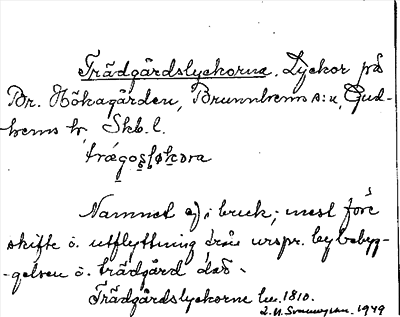 Trädgårdslyckorna. Lyckor på
Br. Hökagården, Brunnhems s:n, Gud-
hems hd, Skb. l.
Namnet ej i bruk; mest före
skifte o. utflyttning från urspr. bybebyg-
-gelsen o. trädgård där.
Trädgårdslyckorna lm. 1810.
1949